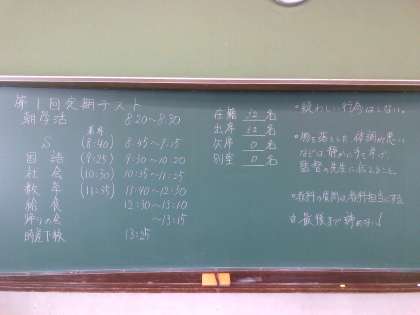 第1回定期テスト
朝学活 8:20〜8:30
着席
S (8:40) 8:45〜9:15
国語 (9:25) 9:30〜10:20
社会 (10:30) 10:35〜11:25
数学 (11:35) 11:40〜12:30
給食 12:30〜13:10
帰りの会 〜13:15
完全下校 13:25
在籍 32名
出席 32名
欠席 0名
別室 0名
・疑わしい行為はしない。
・物を落とした、体調が悪い
などは静かに手を挙げ、
監督の先生に伝えること。
・教科の質問は教科担当に
☆最後まで諦めない!